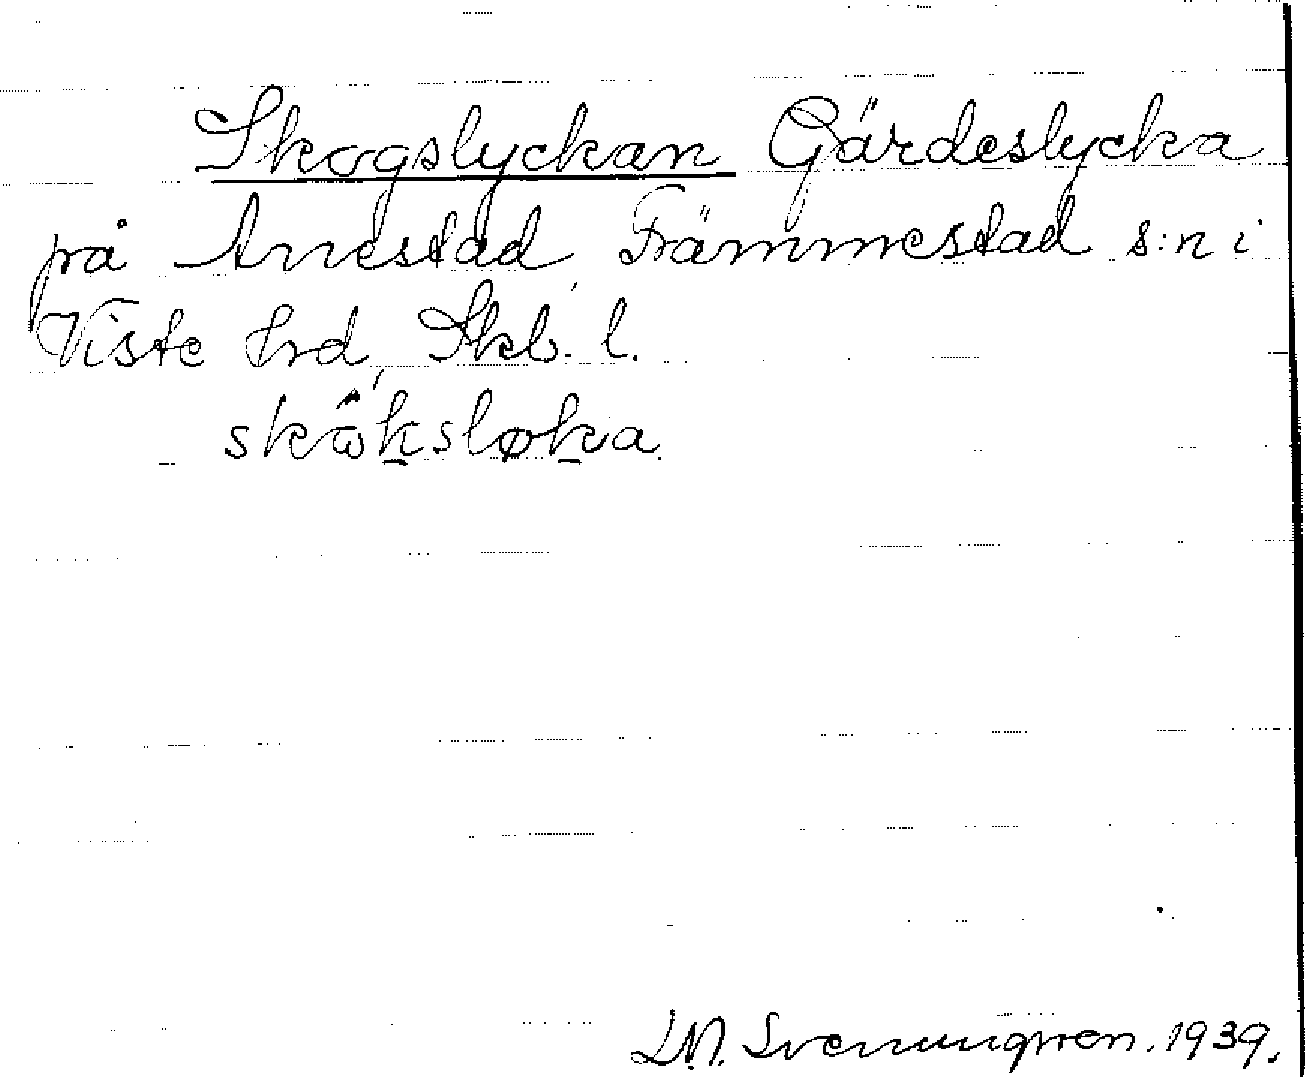 Skogslyckan Gärdeslycka
på Anestad, Främmestad s:n i
Viste hrd, Skb. l.
skôksløka.
D.N. Svenungsson. 1939.